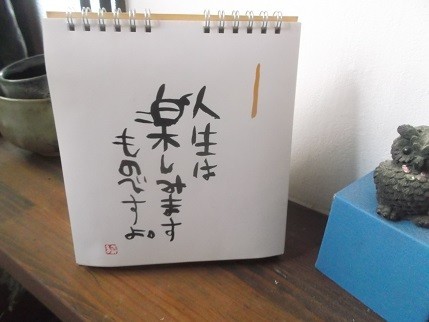 一
人生は
楽しみます
ものですよ。